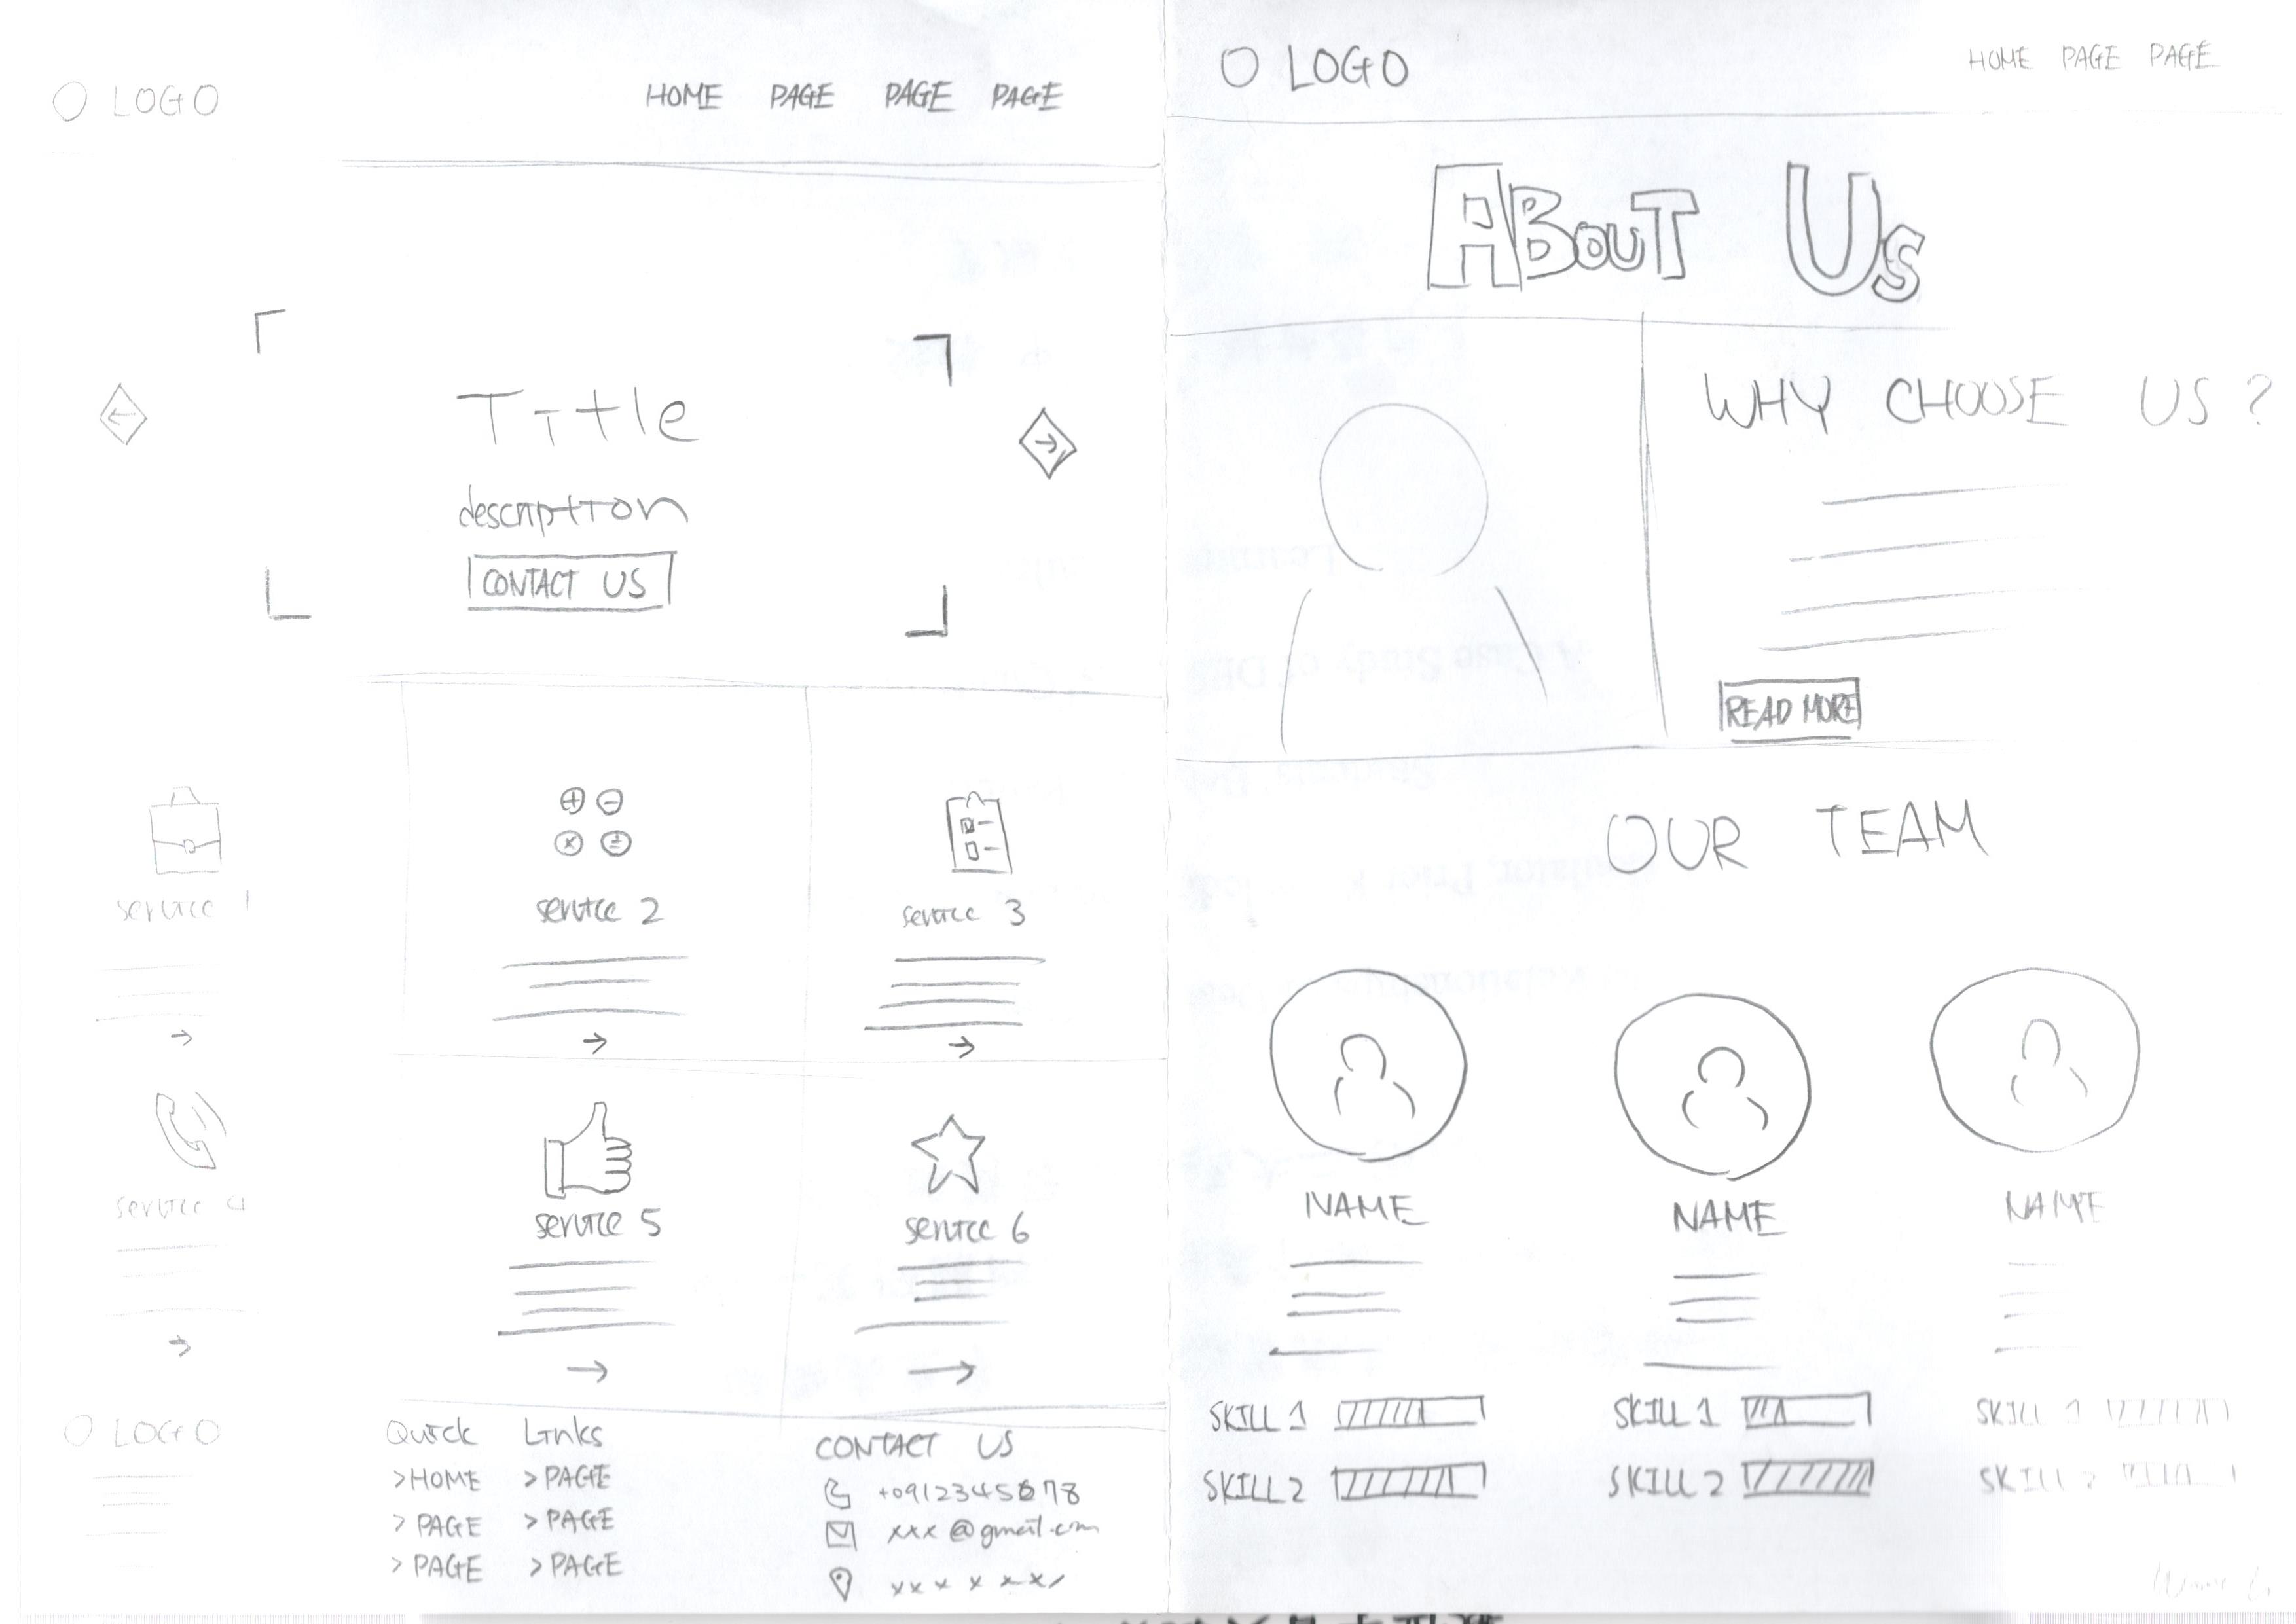 LOGO
HOME PAGE PAGE PAGE
Title
description
CONTACT US
service 1
service 2
service 3
service 4
service 5
service 6
LOGO
Quick Links
>HOME >PAGE
>PAGE >PAGE
>PAGE >PAGE
CONTACT US
+0912345678
xxx@gmail.com
xxxxxxx
LOGO
HOME PAGE PAGE
ABOUT US
WHY CHOOSE US?
READ MORE
OUR TEAM
NAME
NAME
NAME
SKILL 1
SKILL 2
SKILL 1
SKILL 2
SKILL 1
SKILL 2